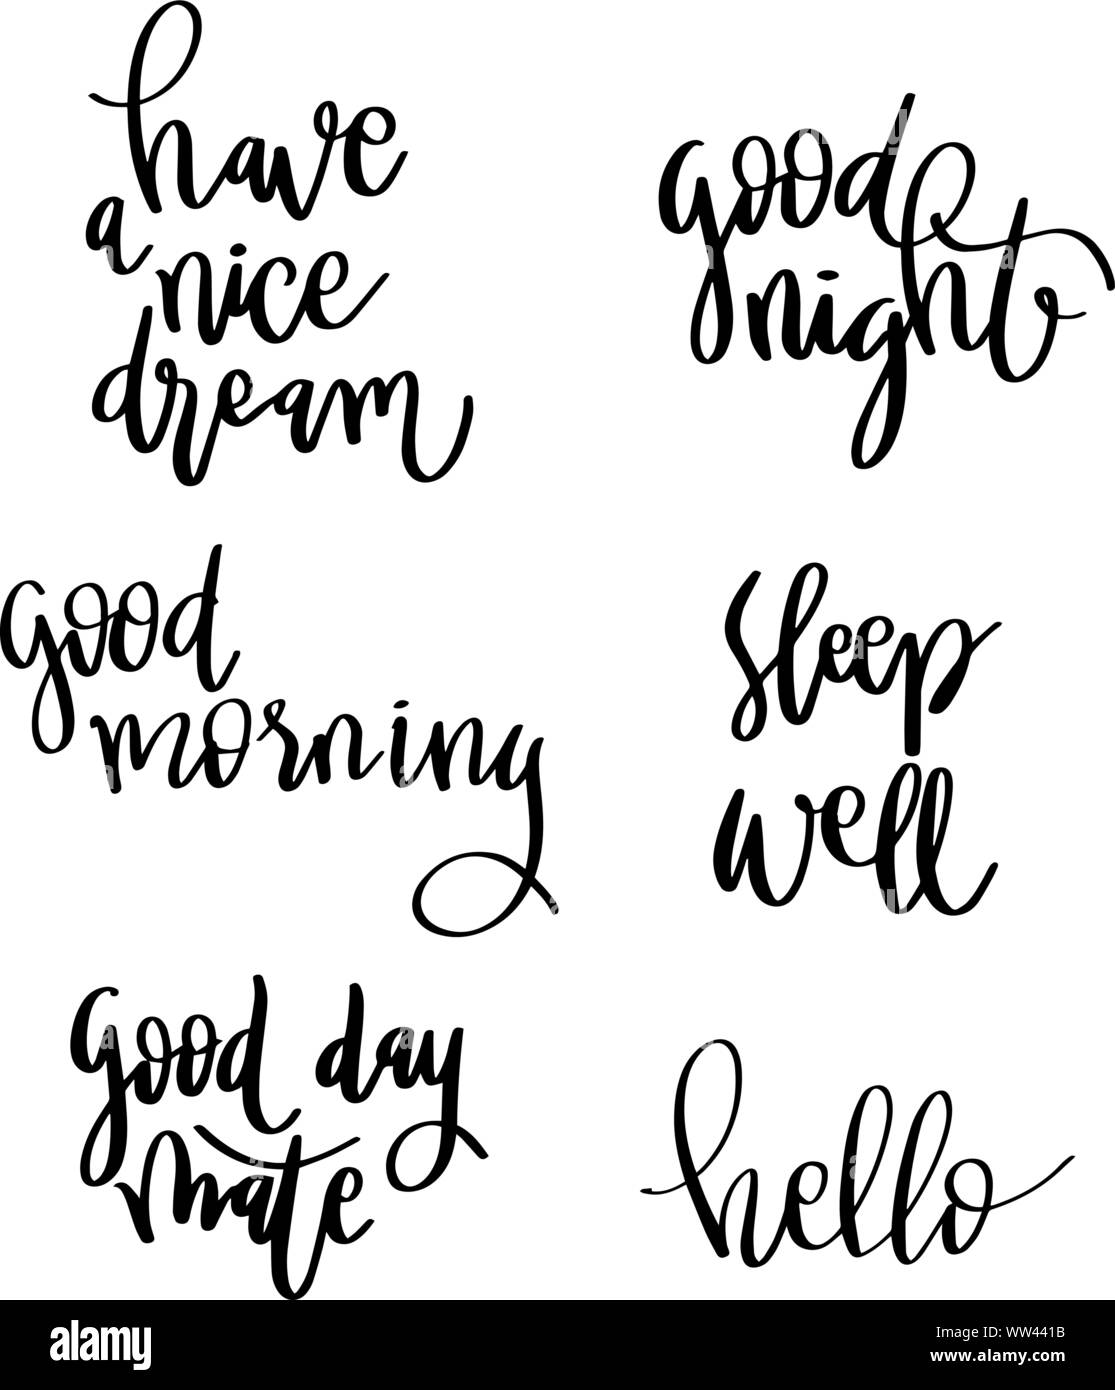 have
a
nice
dream
good
night
good
morning
sleep
well
good day
mate
hello
alamy
Image ID: WW441B
www.alamy.com